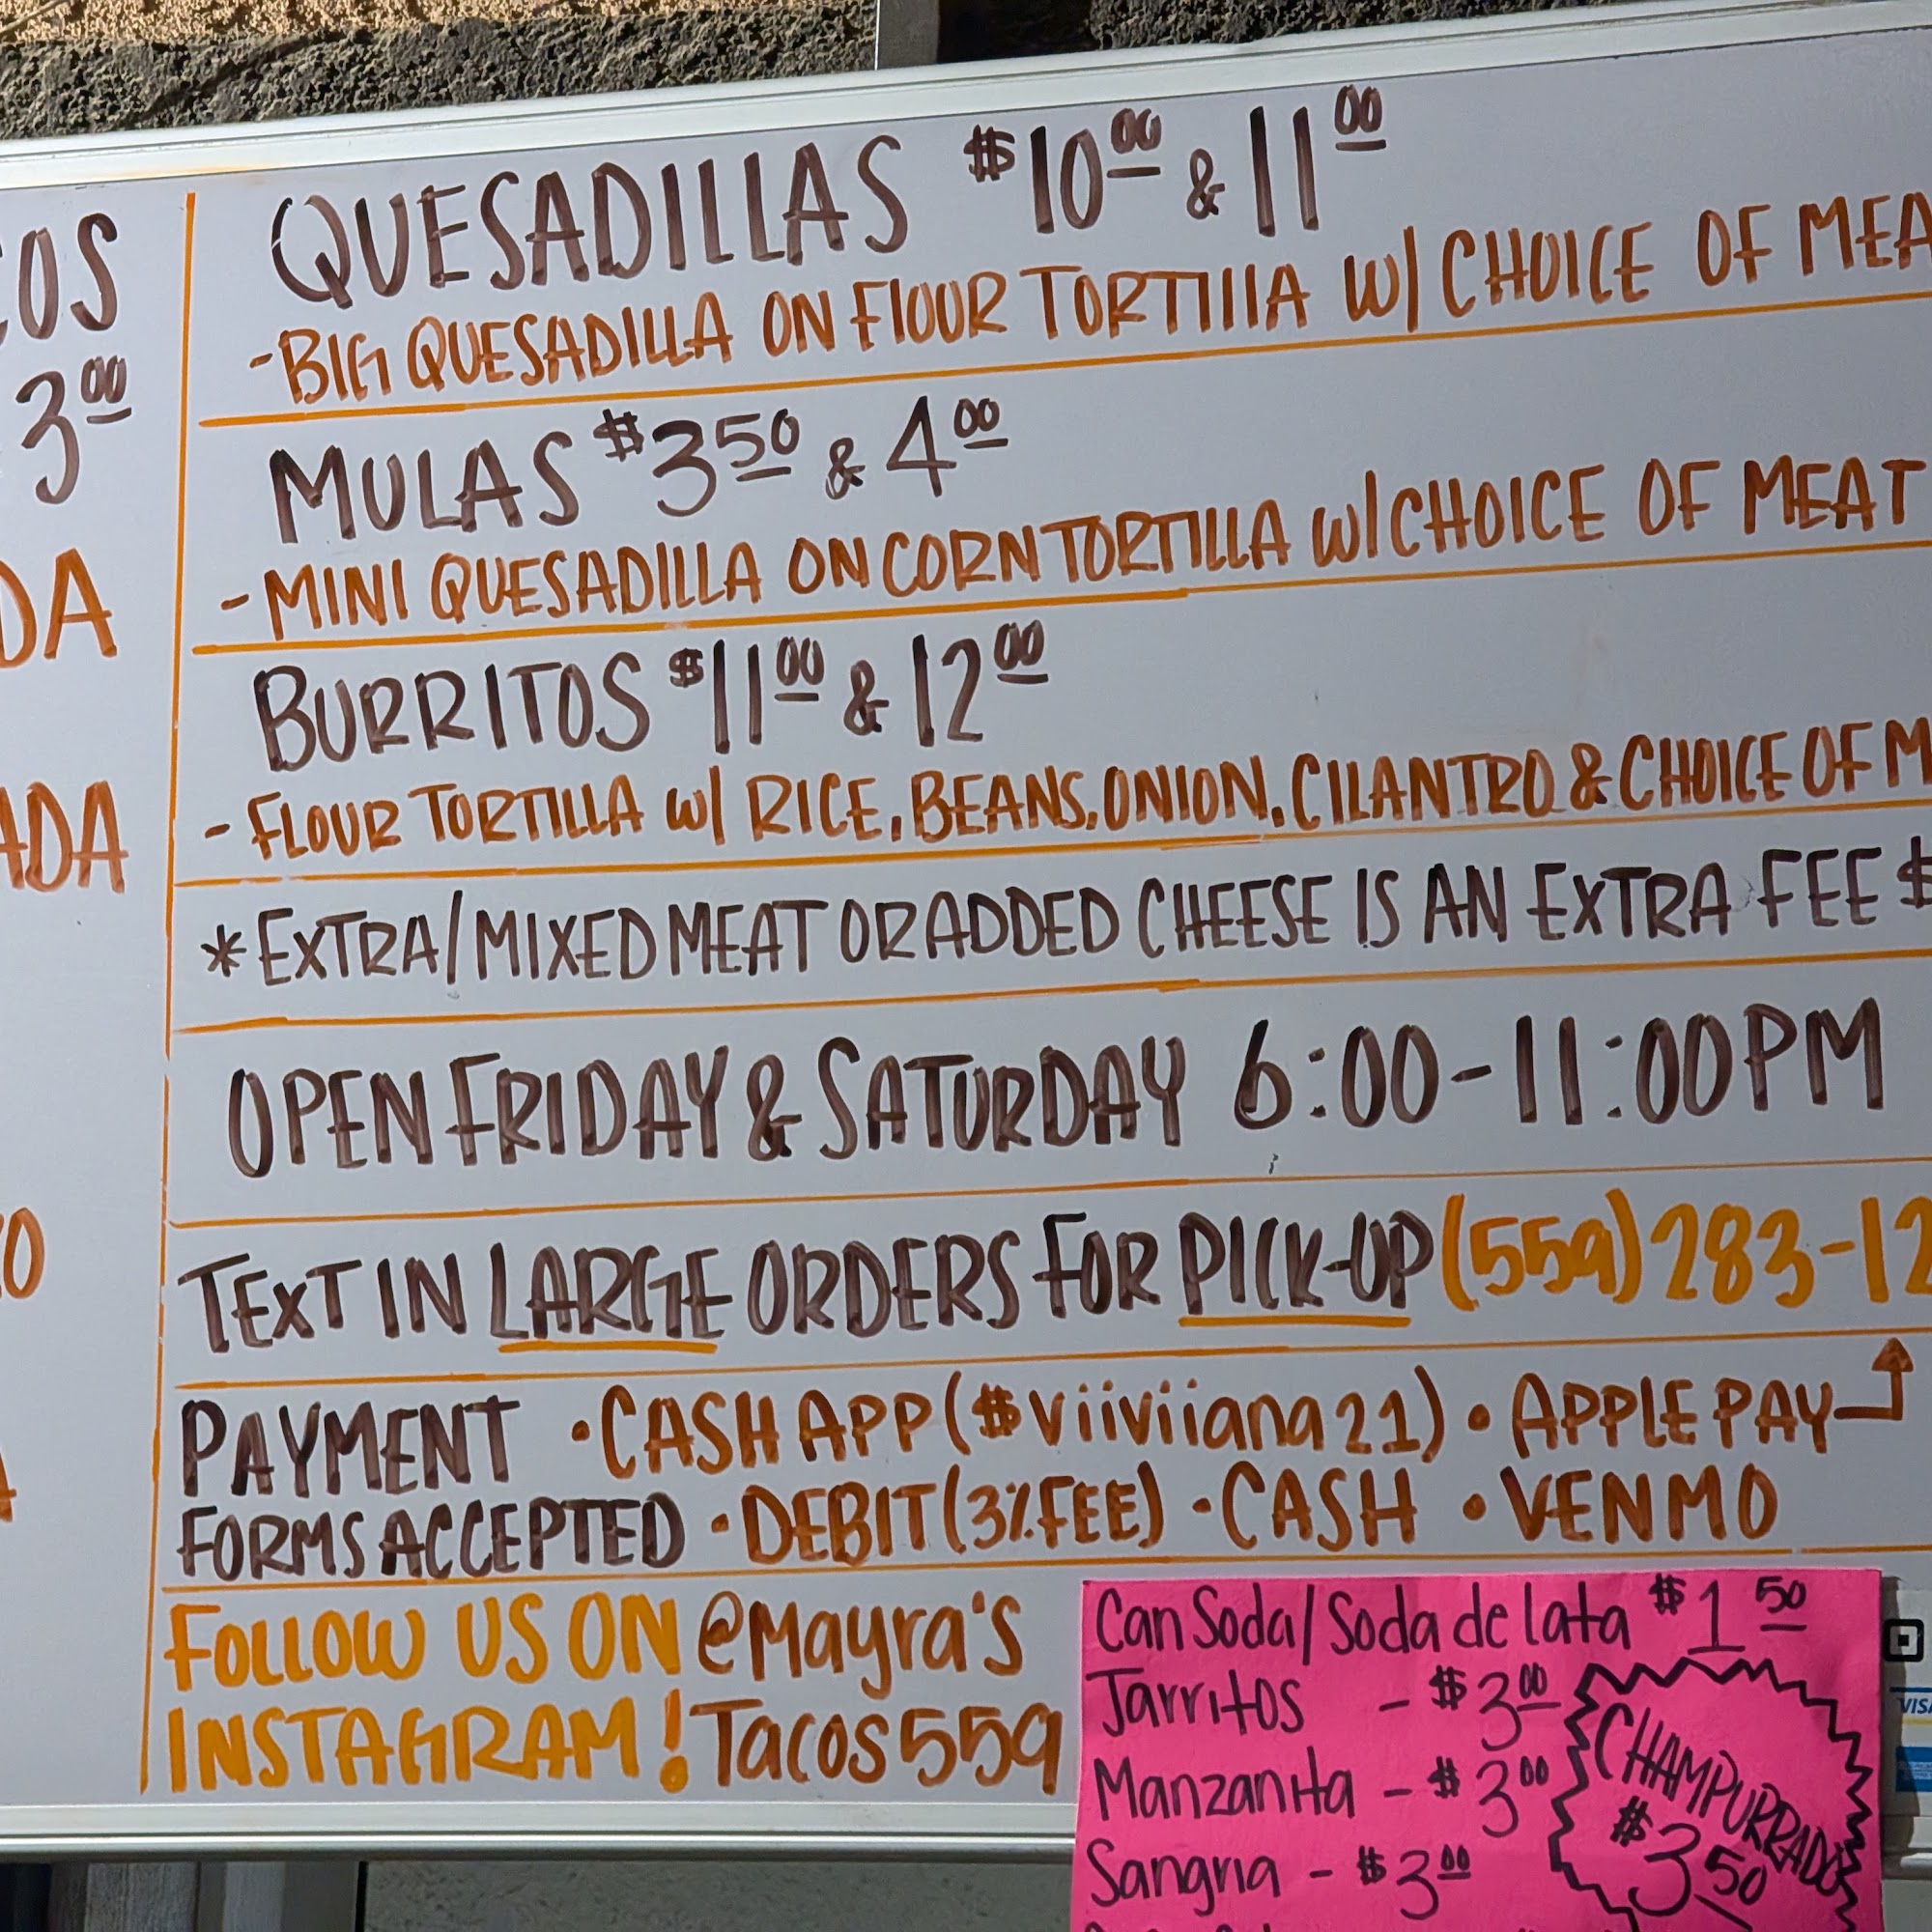 COS
3.00
DA
ADA
O
A
QUESADILLAS $10.00 & 11.00
-BIG QUESADILLA ON FLOUR TORTILLA W/ CHOICE OF MEA
MULAS $3.50 & 4.00
-MINI QUESADILLA ON CORN TORTILLA W/ CHOICE OF MEAT
BURRITOS $11.00 & 12.00
- FLOUR TORTILLA W/ RICE, BEANS, ONION, CILANTRO & CHOICE OF M
*EXTRA/MIXED MEAT OR ADDED CHEESE IS AN EXTRA FEE $
OPEN FRIDAY & SATURDAY 6:00-11:00PM
TEXT IN LARGE ORDERS FOR PICK-UP (559) 283-12
PAYMENT •CASH APP ($viiviiana21) • APPLE PAY
FORMS ACCEPTED •DEBIT (3% FEE) •CASH •VENMO
FOLLOW US ON @Mayra's
INSTAGRAM! Tacos559
Can Soda/Soda de lata $1.50
Jarritos - $3.00
Manzanita - $3.00
Sangria - $3.00
CHAMPURRADO
$3.50
VISA